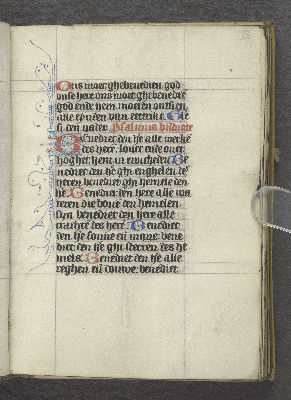 Ons moet ghebenedien god
onse here ons moet ghebenedie
god ende hem moeten ontsien
alle eynden van eertrike. Glo
si den vader Psalmus bndicte
Benediet den he alle wercke
des heren louet ende ouer
hoghet hem in ewicheden Be
nediet den he ghi enghelen des
heren benediet ghi hemele den
he. Benediet den here alle wa
teren die bouen den hemelen
syn benediet den here alle
crachte des heren. Benediet
den he sonne en mane bene
diet den he ghi sterren des he
mels. Benediet den he alle
reghen en douwe. benediet